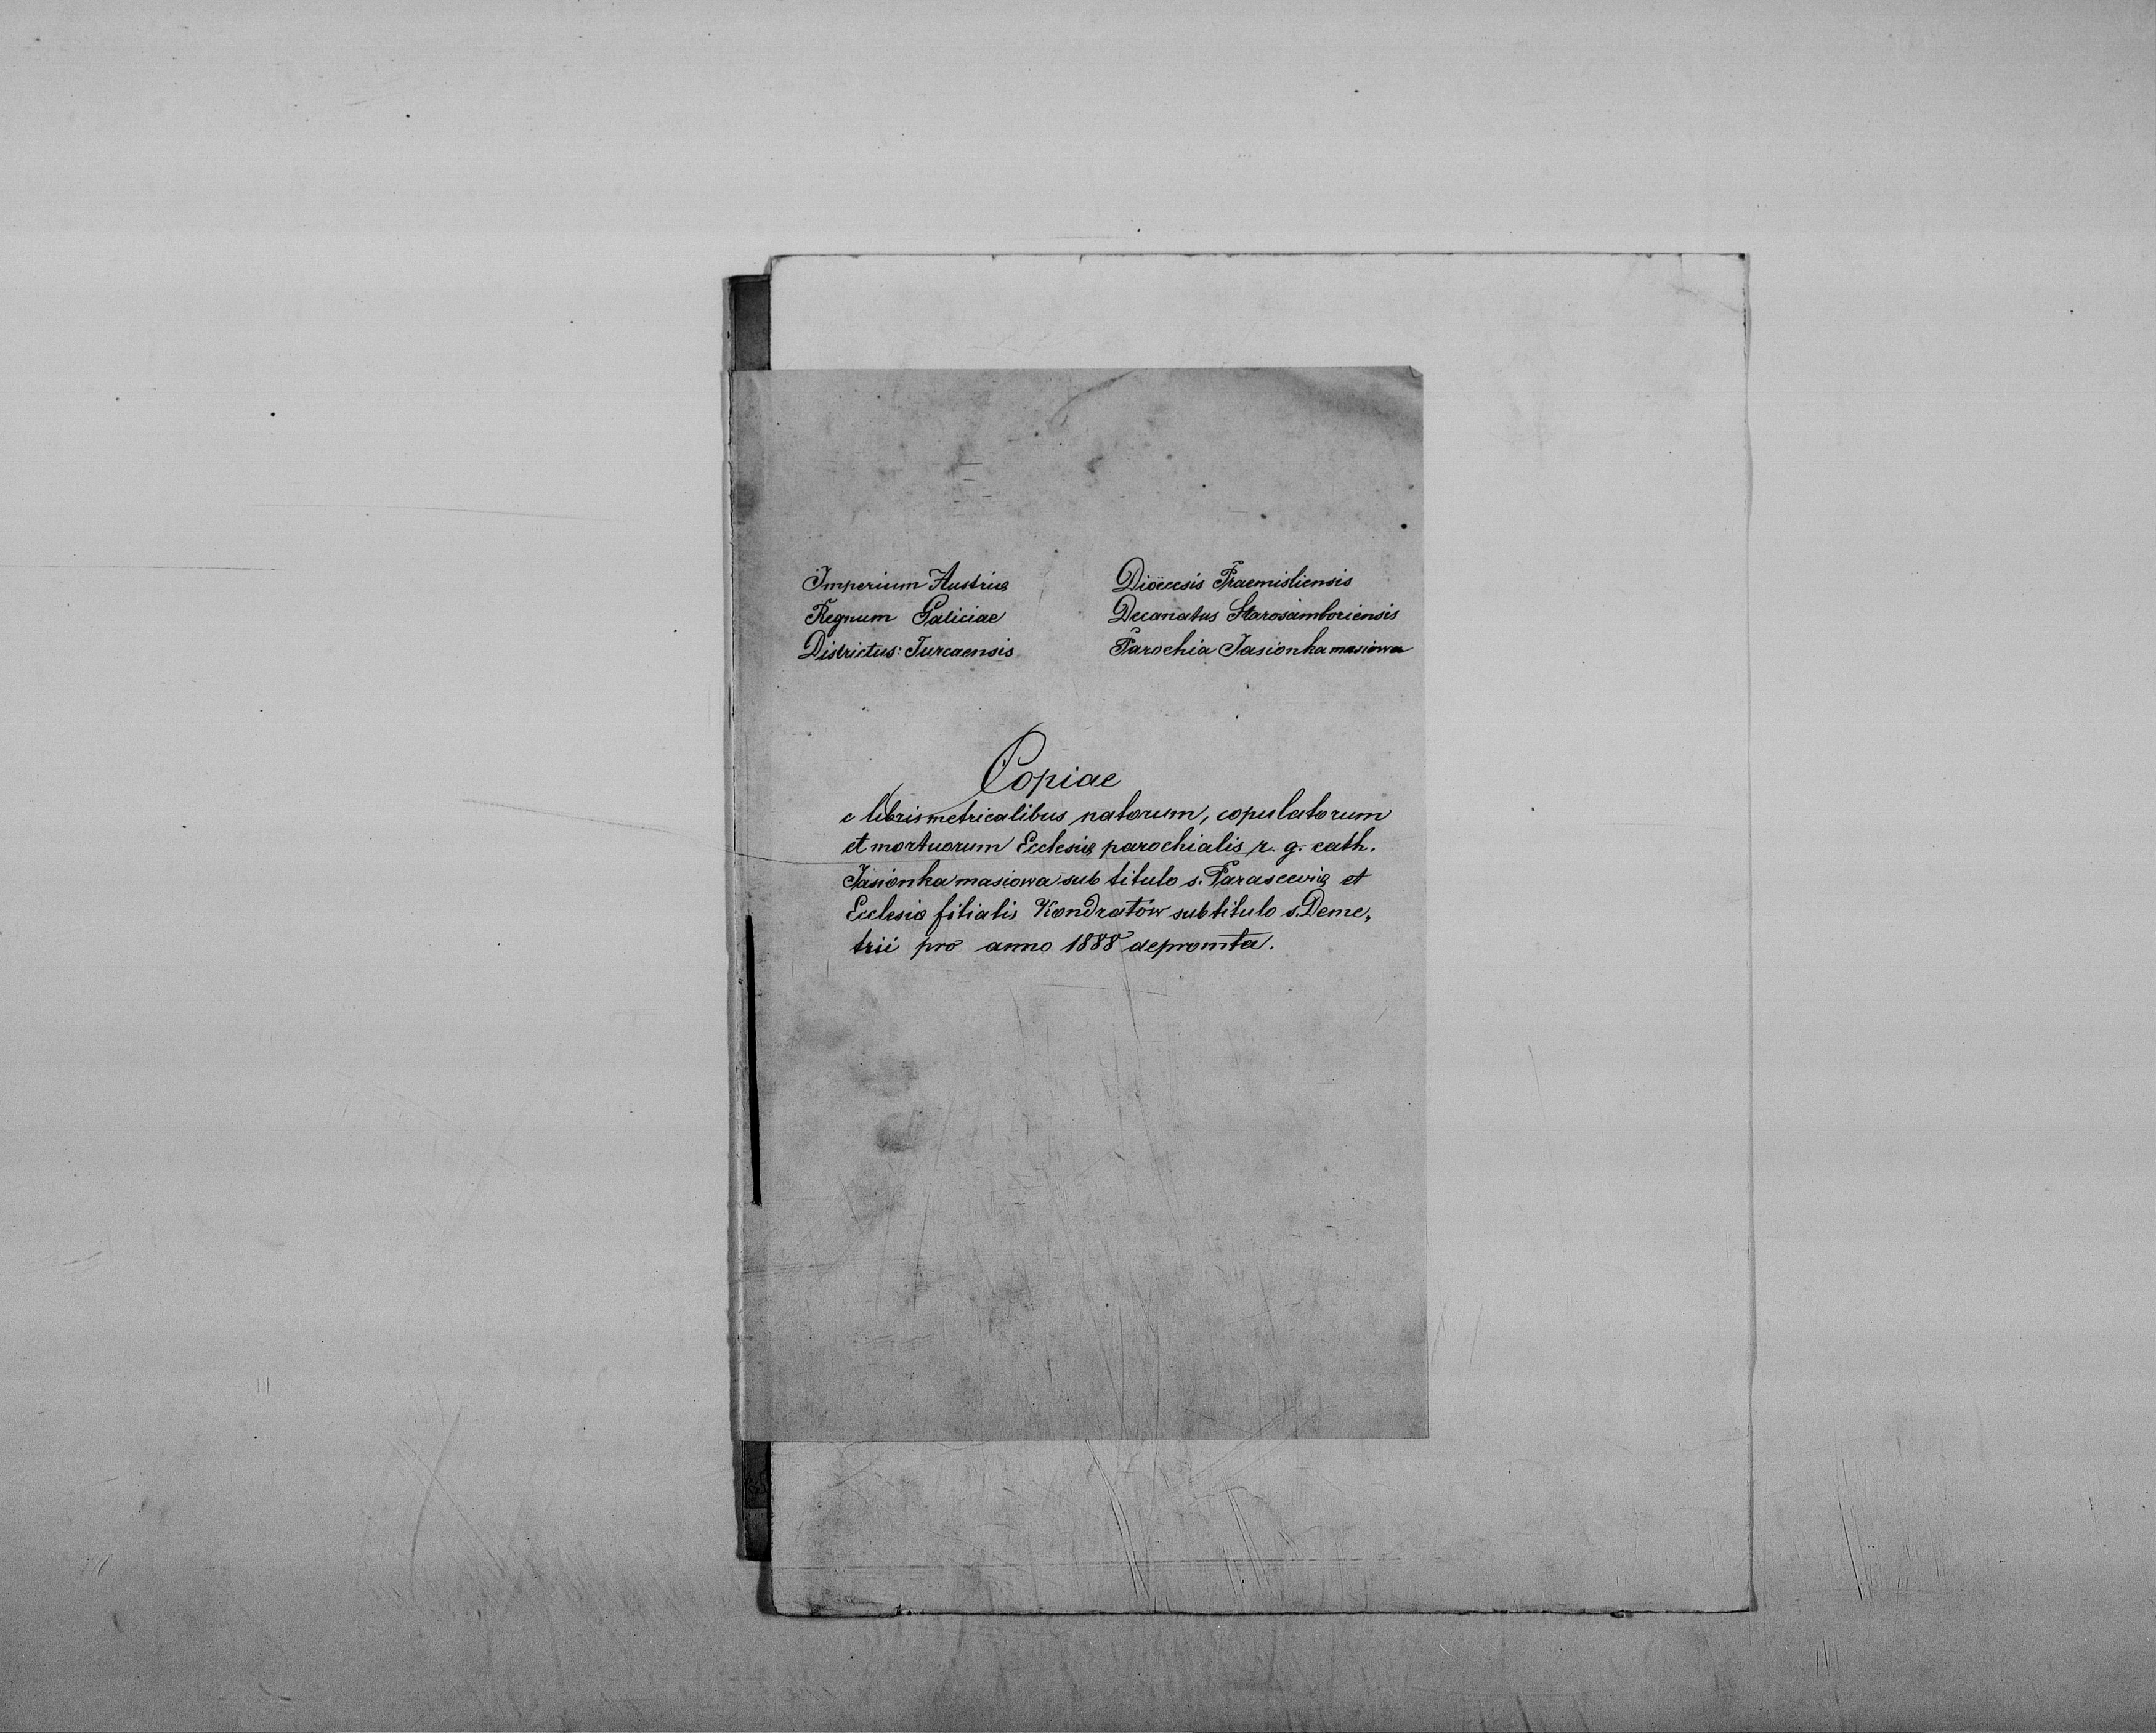 Imperium Austriæ
Regnum Galiciae
Districtus: Turcaensis
Dioecesis Praemisliensis
Decanatus Starosamboriensis
Parochia Jasionka masiowa
Copiae
e libris metricalibus natorum, copulatorum
et mortuorum Ecclesiæ parochialis r. g. cath.
Jasionka masiowa sub titulo s. Parasceviæ et
Ecclesiæ filialis Kondratów sub titulo s. Deme,
trii pro anno 1888 depromta.